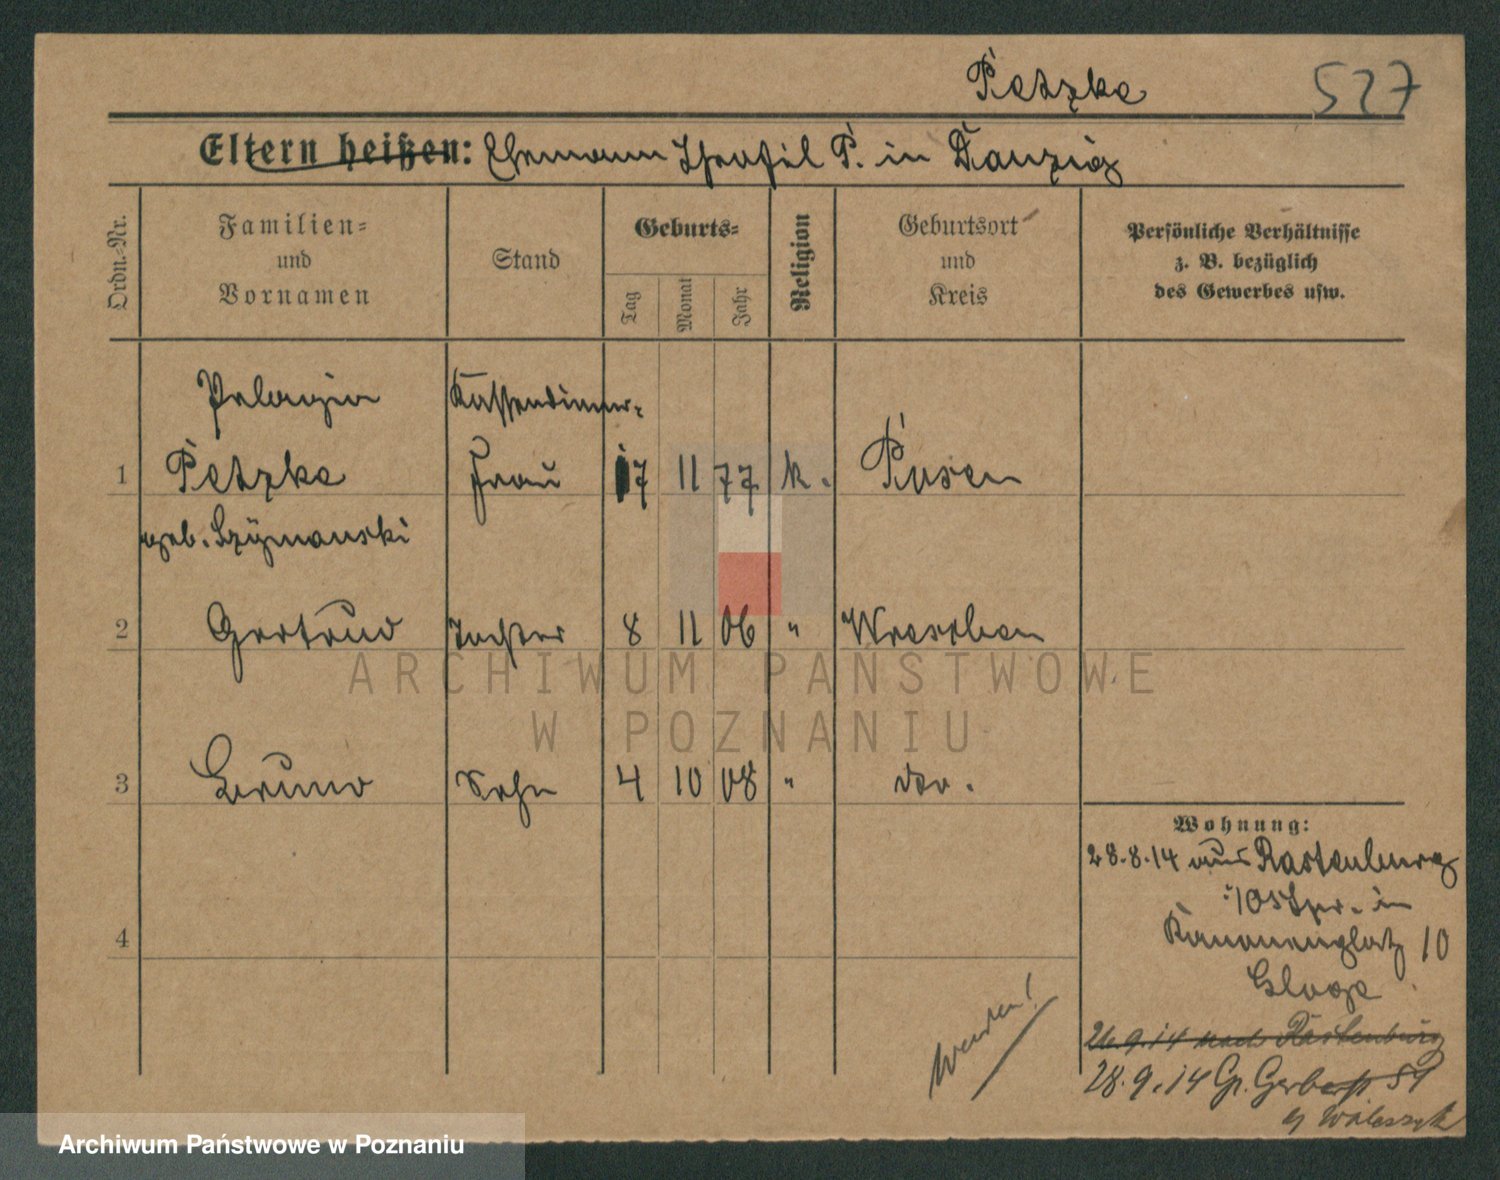 Petzke 527
Eltern heißen: Ehemann Theofil P. in Danzig
Ordn.-Nr.
Familien-
und
Vornamen
Stand
Geburts-
Tag
Monat
Jahr
Religion
Geburtsort
und
Kreis
Persönliche Verhältnisse
z. B. bezüglich
des Gewerbes usw.
Pelagia Kassendiener-
1 Petzke Frau 17 11 77 k. Posen
geb. Szymanski
2 Gertrud Tochter 8 11 06 " Wreschen
3 Bruno Sohn 4 10 08 " do.
4
Wohnung:
28.8.14 aus Rastenburg
Ostpr. in
Kanonenplatz 10
26.9.14 nach Rastenburg
28.9.14 Gr. Gerberst 59
Wenden!
ARCHIWUM PAŃSTWOWE
W POZNANIU
Archiwum Państwowe w Poznaniu